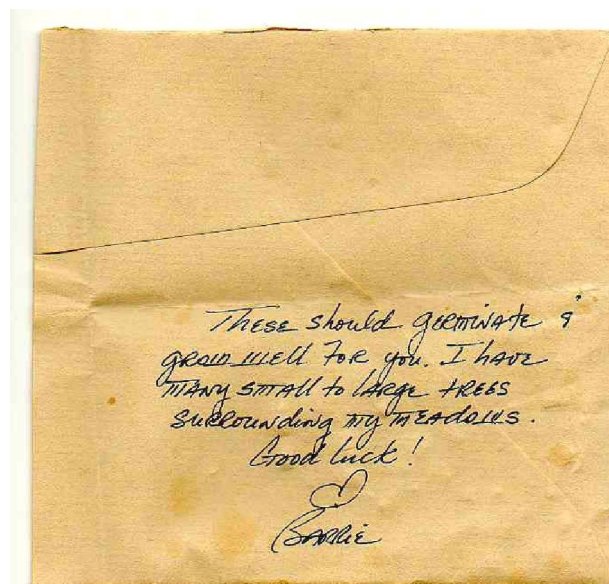 These should germinate &
grow well for you. I have
many small to large trees
surrounding my meadows.
Good luck!
Barrie